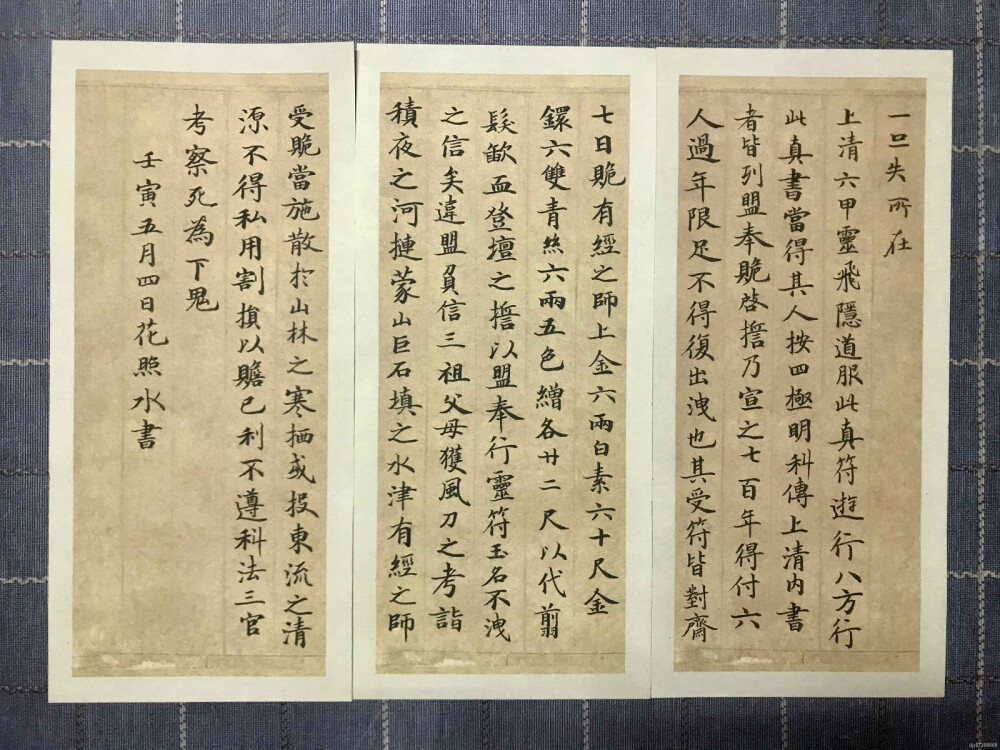 一旦失所在
上清六甲靈飛隱道服此真符遊行八方行
此真書當得其人按四極明科傳上清內書
者皆列盟奉賝啓擔乃宣之七百年得付六
人過年限足不得復出洩也其受符皆對齋
七日賝有經之師上金六兩白素六十尺金
鐶六雙青絲六兩五色繒各廿二尺以代翦
髮歃血登壇之擔以盟奉行靈符玉名不洩
之信矣違盟負信三祖父母獲風刀之考詣
積夜之河摙蒙山巨石填之水津有經之師
受賝當施散於山林之寒栖或投東流之清
源不得私用割損以贍己利不遵科法三官
考察死為下鬼
壬寅五月四日花照水書